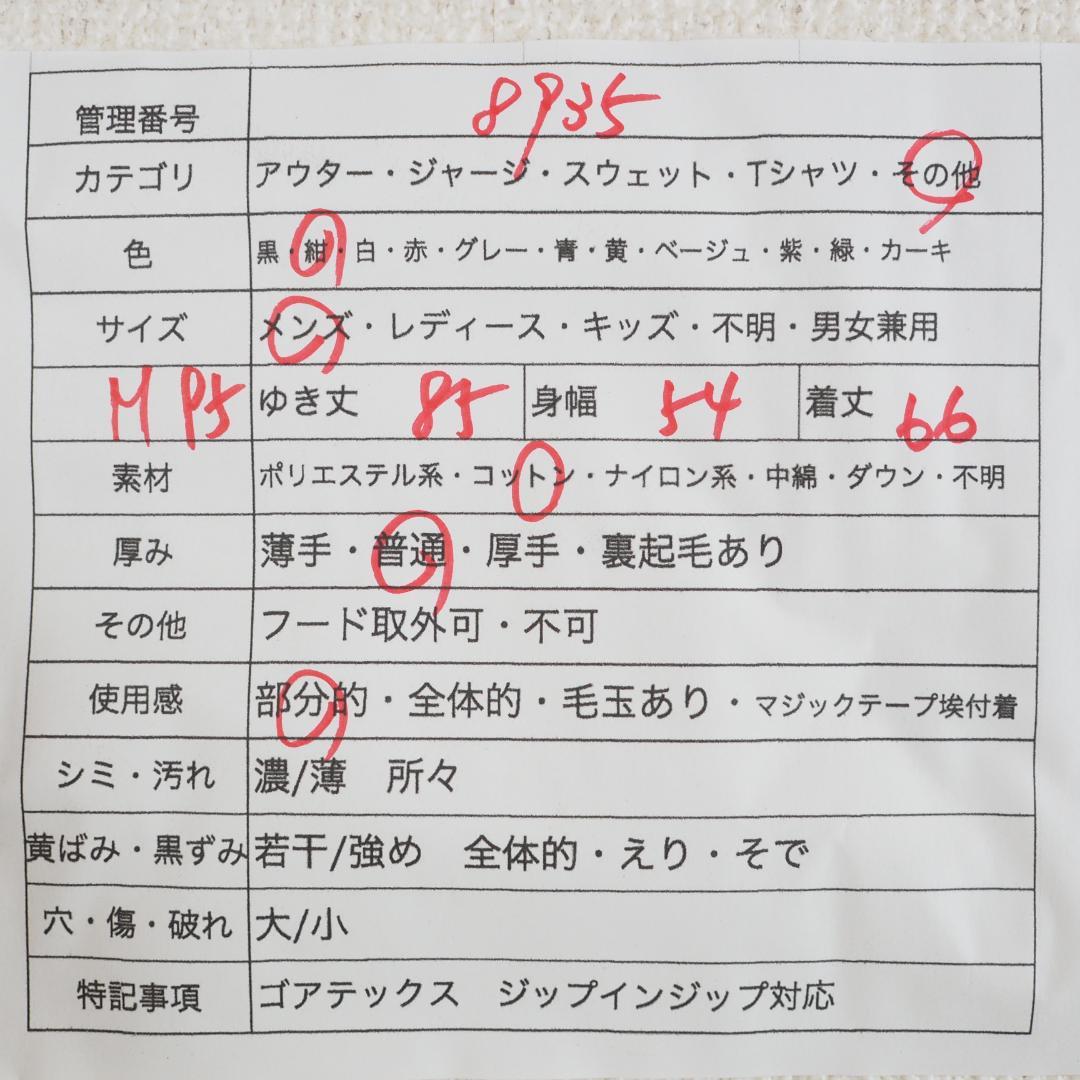 管理番号 8935
カテゴリ アウター・ジャージ・スウェット・Tシャツ・その他
色 黒・紺・白・赤・グレー・青・黄・ベージュ・紫・緑・カーキ
サイズ メンズ・レディース・キッズ・不明・男女兼用
M P5 ゆき丈 85 身幅 54 着丈 66
素材 ポリエステル系・コットン・ナイロン系・中綿・ダウン・不明
厚み 薄手・普通・厚手・裏起毛あり
その他 フード取外可・不可
使用感 部分的・全体的・毛玉あり・マジックテープ埃付着
シミ・汚れ 濃/薄 所々
黄ばみ・黒ずみ 若干/強め 全体的・えり・そで
穴・傷・破れ 大/小
特記事項 ゴアテックス ジップインジップ対応